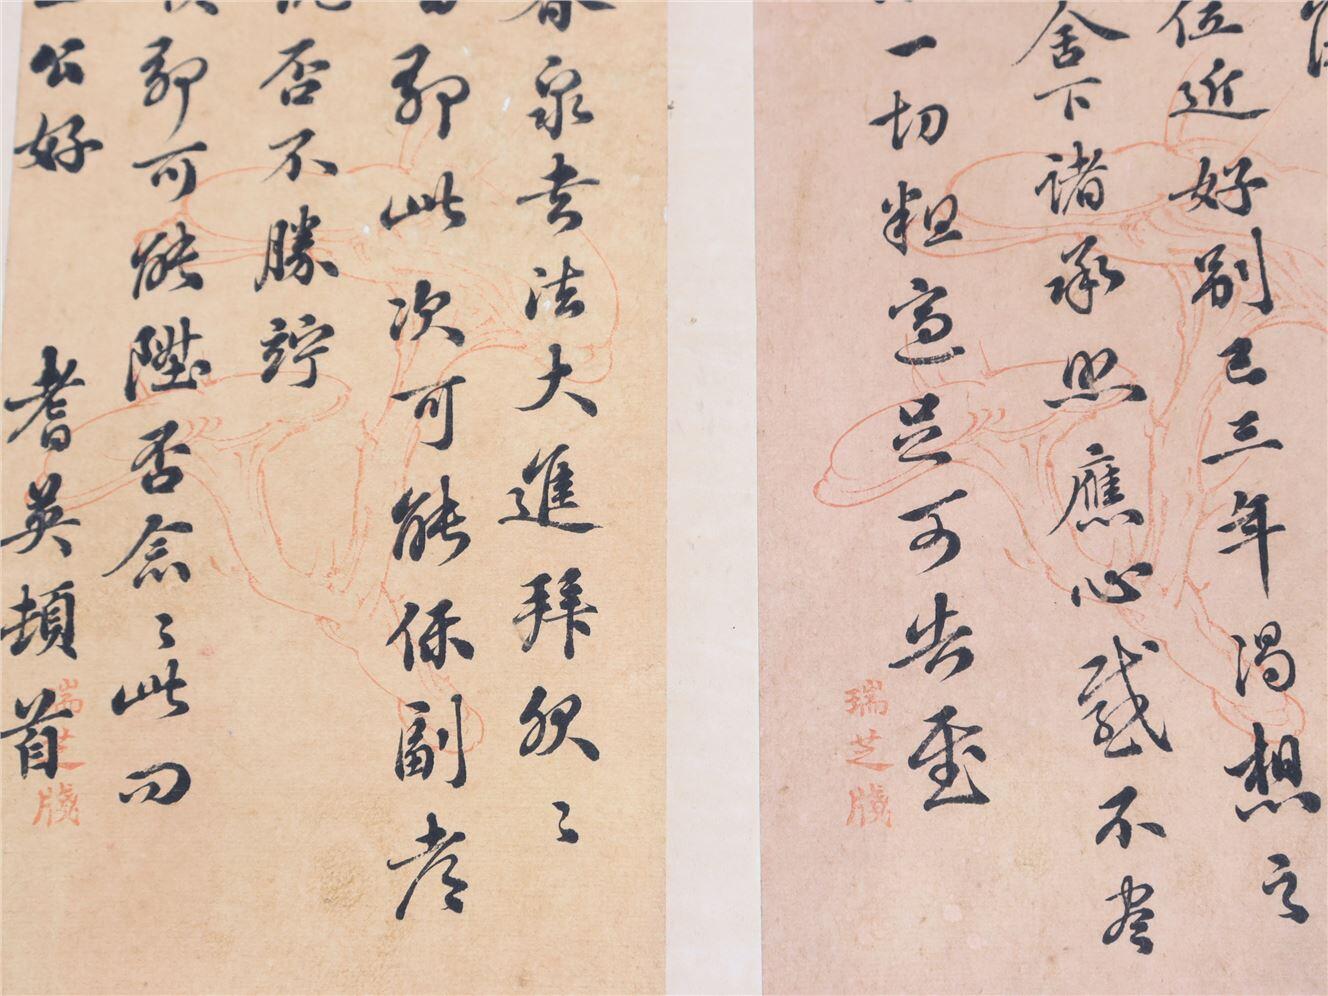 位近好别已三年渴想之
舍下诸承照應心感不尽
一切粗適足可告慰
瑞芝牋
春泉去法大進拜服〻
卿此次可能保副孝
否不勝竚
卿可能陞否念〻此问
公好
耆英頓首
瑞芝牋